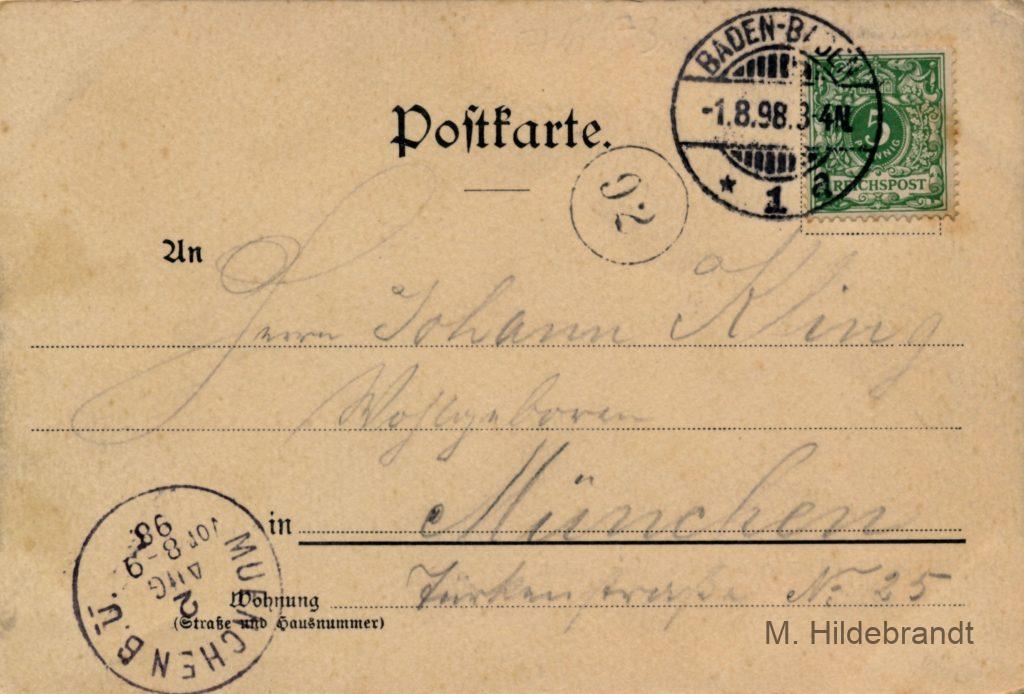 BADEN-BADEN
-1.8.98.3-4N.
* 1 a
5
REICHSPOST
Postkarte.
92
An
Herrn Johann Kling
Wohlgeboren
in München
MUENCHEN B. Ü.
2 AUG
VOR 8-9
98
Wohnung Türkenstraße No. 25
(Straße und Hausnummer)
M. Hildebrandt